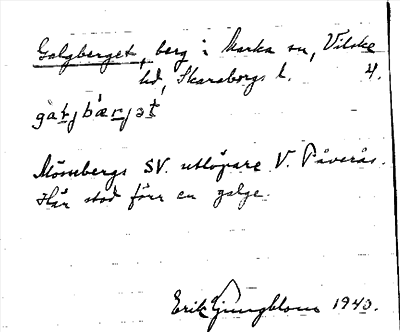 Galgberget, berg i Marka sn, Vilske
hd, Skaraborgs l. 4.
Mössebergs SV. utlöpare V. Påverås.
Här stod förr en galge.
Erik Ljungblom 1940.